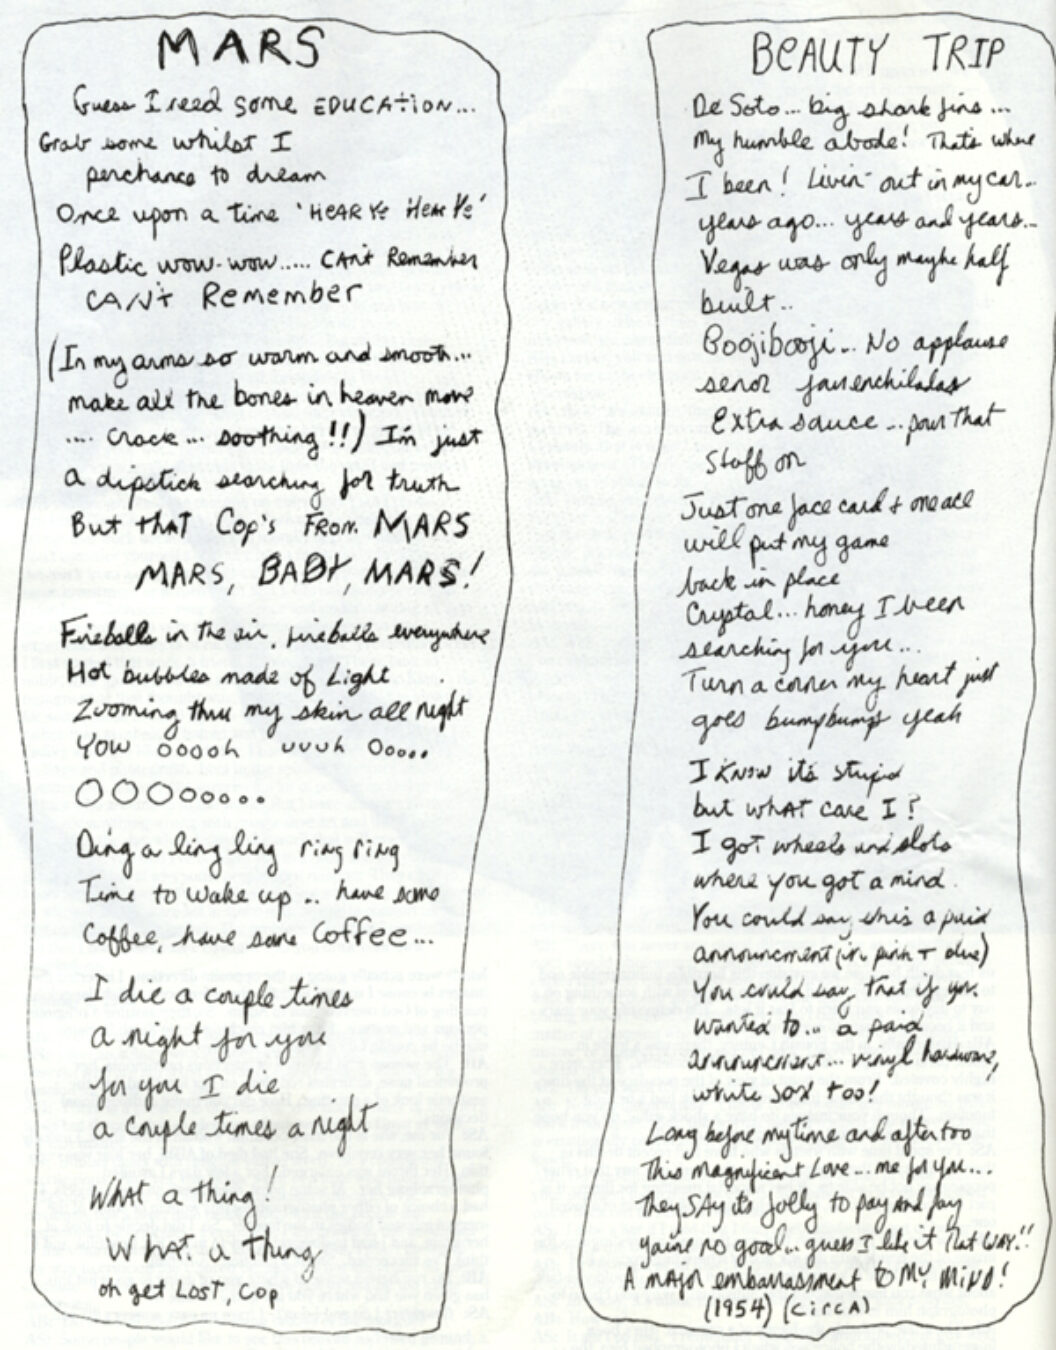 MARS
Guess I need some EDUCATION...
Grab some whilst I
perchance to dream
Once upon a time 'HEAR Ye Hear Ye'
Plastic wow-wow..... CAn't Remember
CAN't Remember
(In my arms so warm and smooth...
make all the bones in heaven move
.... Crack... soothing!!) I'm just
a dipstick searching for truth
But thAT Cop's FROM MARS
MARS, BABY, MARS!
Fireballs in the air, fireballs everywhere
Hot bubbles made of Light
Zooming thru my skin all night
YOW ooooh uuuh Oo...
OOOOoooo..
Ding a ling ling ring ring
Time to wake up .. have some
Coffee, have some Coffee...
I die a couple times
a night for you
for you I die
a couple times a night
What a thing!
What a thing
oh get Lost, Cop
BEAUTY TRIP
De Soto... big shark fins...
My humble abode! That's where
I been! Livin' out in my car..
years ago... years and years...
Vegas was only maybe half
built..
Boojibooji... No applause
senor enchiladas
Extra sauce... pour that
stuff on
Just one face card + one ace
will put my game
back in place
Crystal... honey I been
searching for you...
Turn a corner my heart just
goes bumpbump yeah
I KNOW it's stupid
but what care I?
I got wheels and slots
where you got a mind.
You could say this a paid
announcment (in pink + blue)
You could say that if you
wanted to... a paid
announcement... vinyl hardware,
white sox too!
Long before my time and after too
This magnificent Love... me for you...
They SAy it's jolly to pay and pay
you're no good... guess I like it that WAY!!
A major embarrassment to MY MIND!
(1954) (circA)